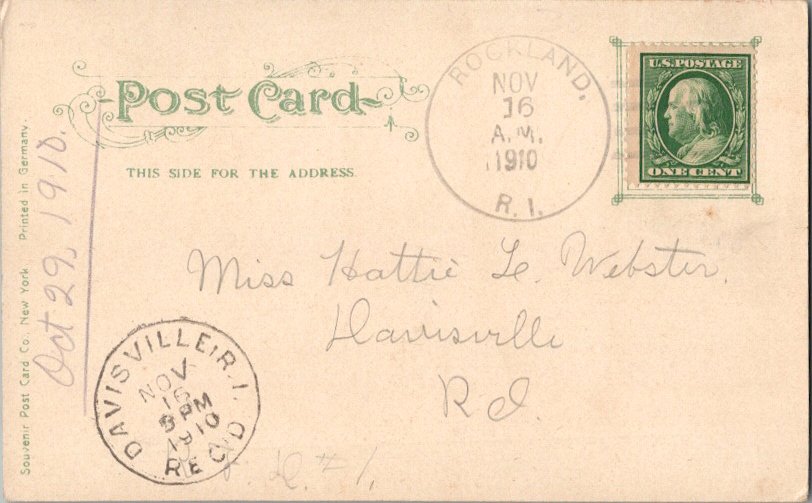 Post Card
THIS SIDE FOR THE ADDRESS.
ROCKLAND,
NOV
16
A.M.
1910
R.I.
U.S. POSTAGE
ONE CENT
Miss Hattie L. Webster.
Davisville
R.I.
D. #1.
DAVISVILLE, R.I.
NOV
16
PM
1910
REC'D
Oct 29, 1910.
Souvenir Post Card Co., New York Printed in Germany.